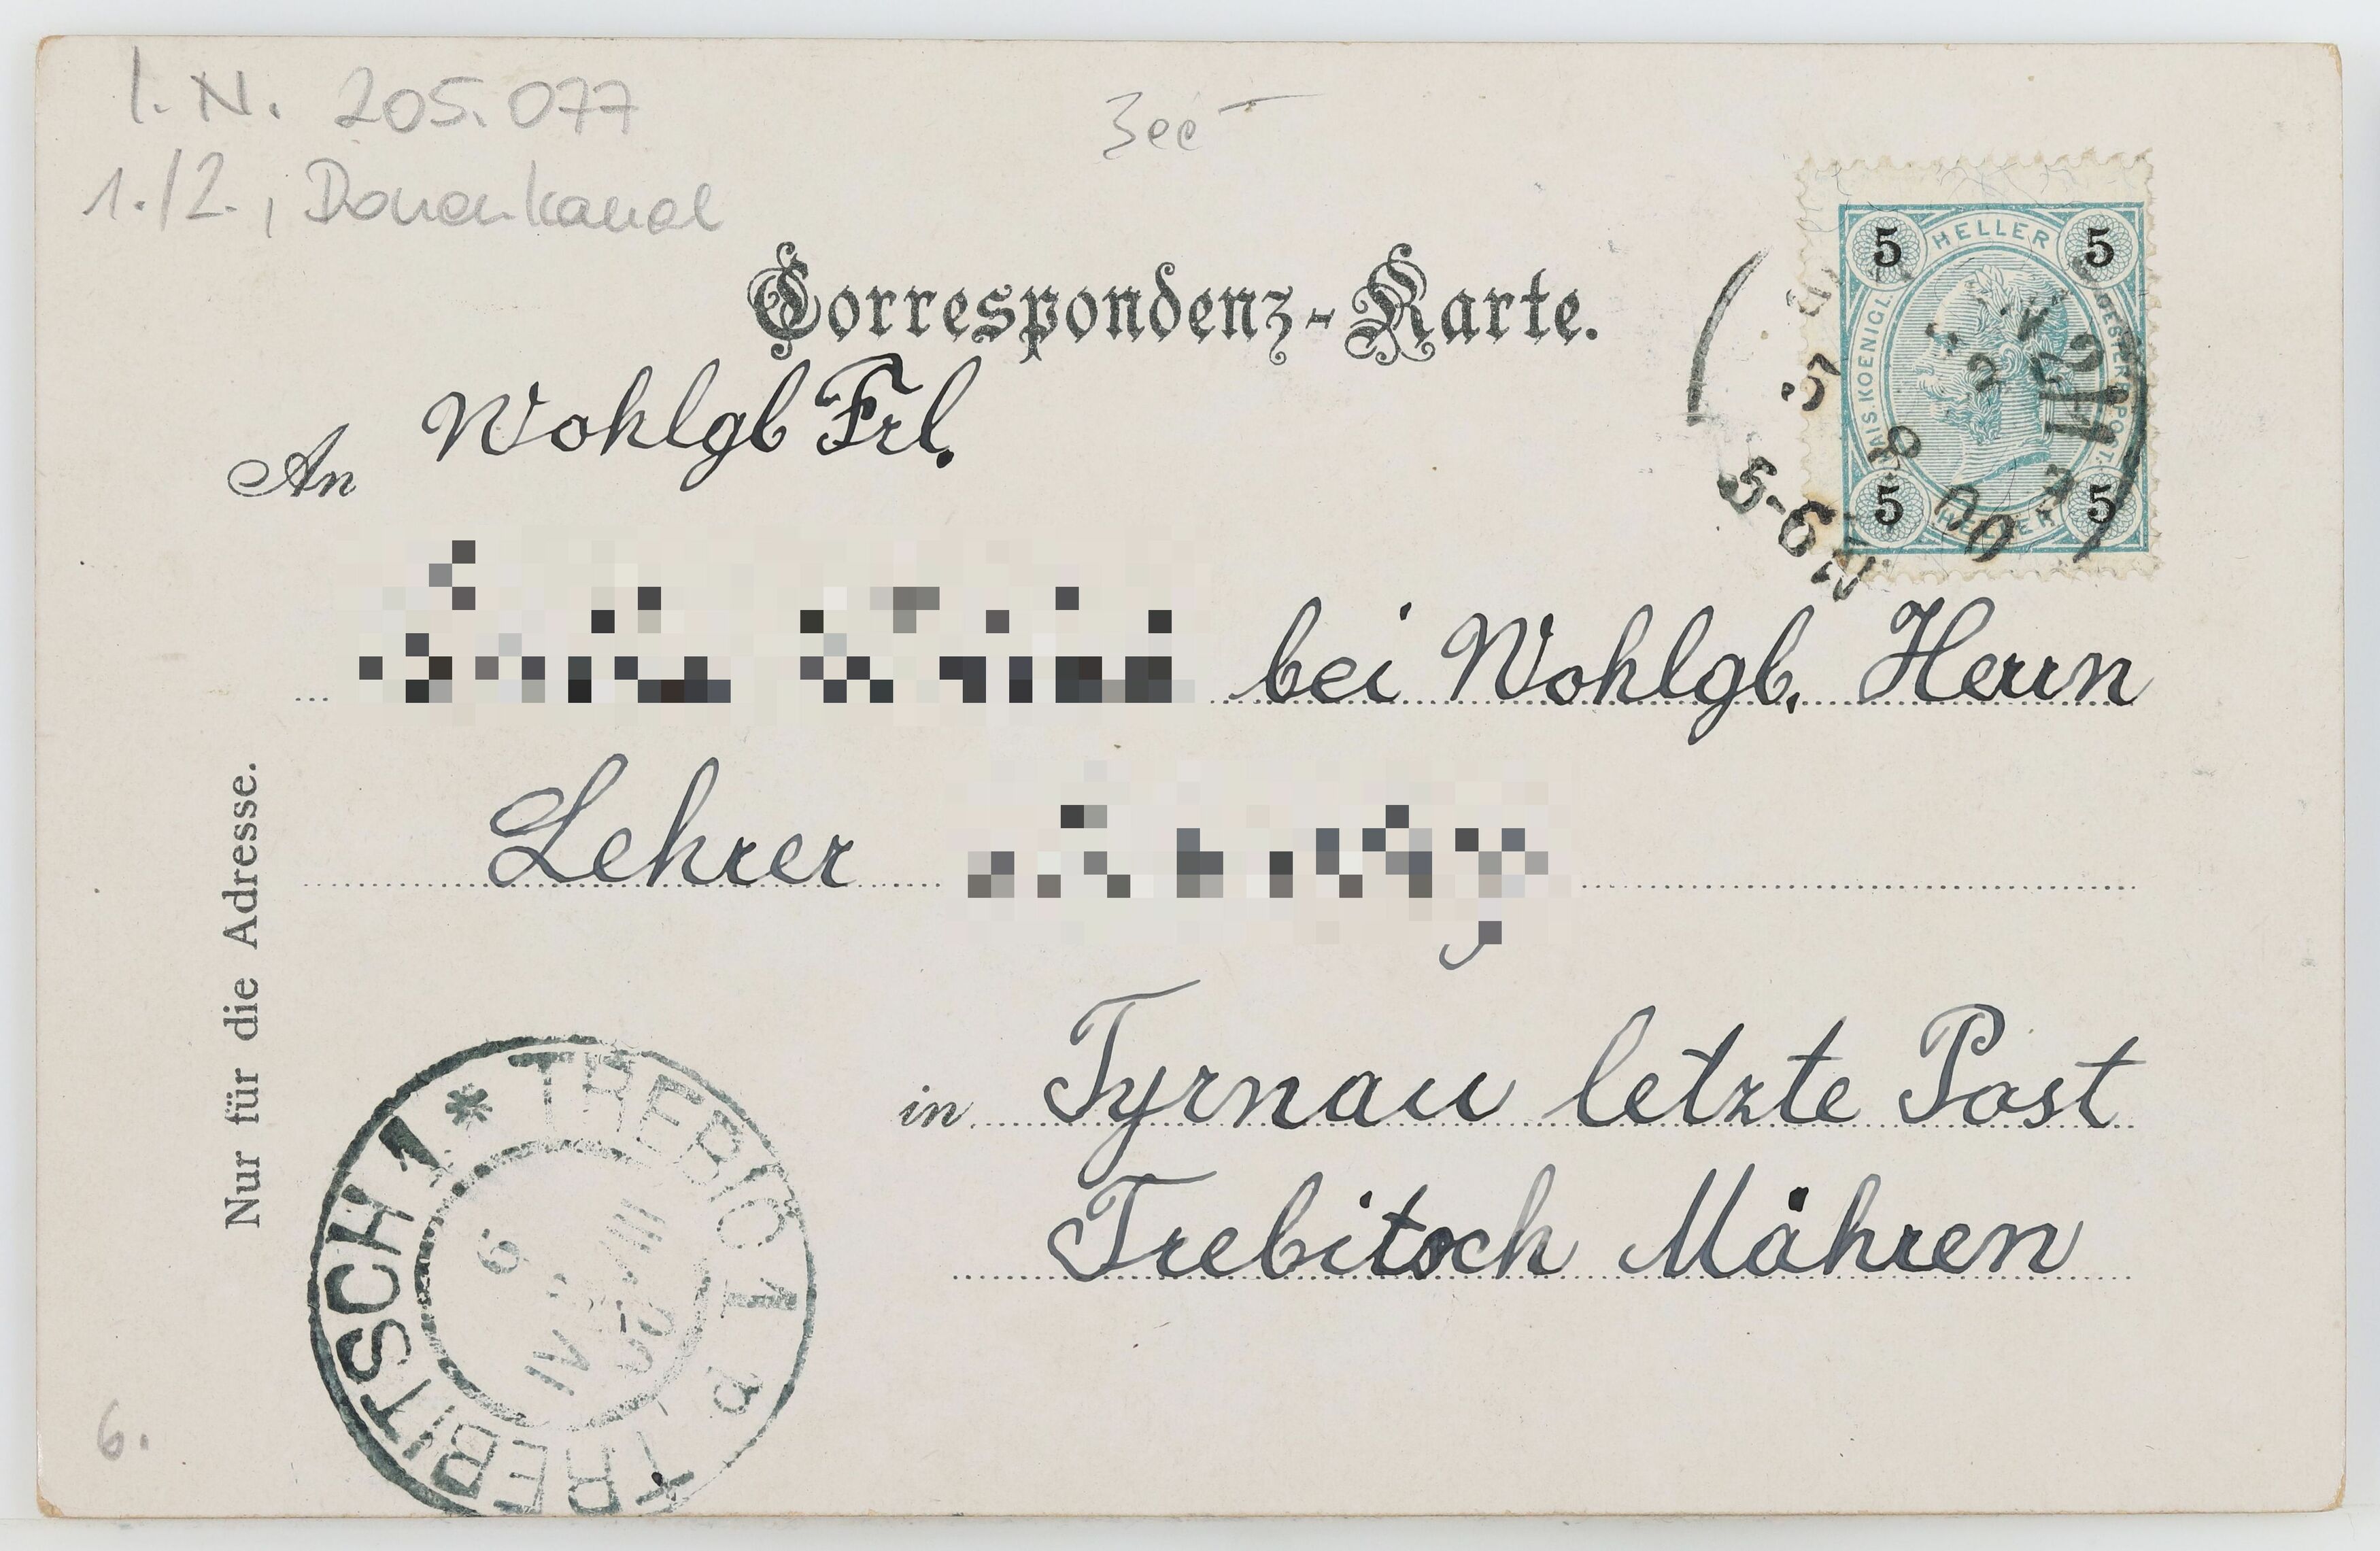 I. N. 205.077
1./2., Donaukanal
Correspondenz-Karte.
An Wohlgb Frl.
bei Wohlgb. Herrn
Lehrer
in Tyrnau letzte Post
Trebitsch Mähren
Nur für die Adresse.
5 HELLER 5
KAIS. KOENIGL. OESTERR. POST.
5 HELLER 5
5-6 N
* TREBIČ 1
TREBITSCH 1
6.